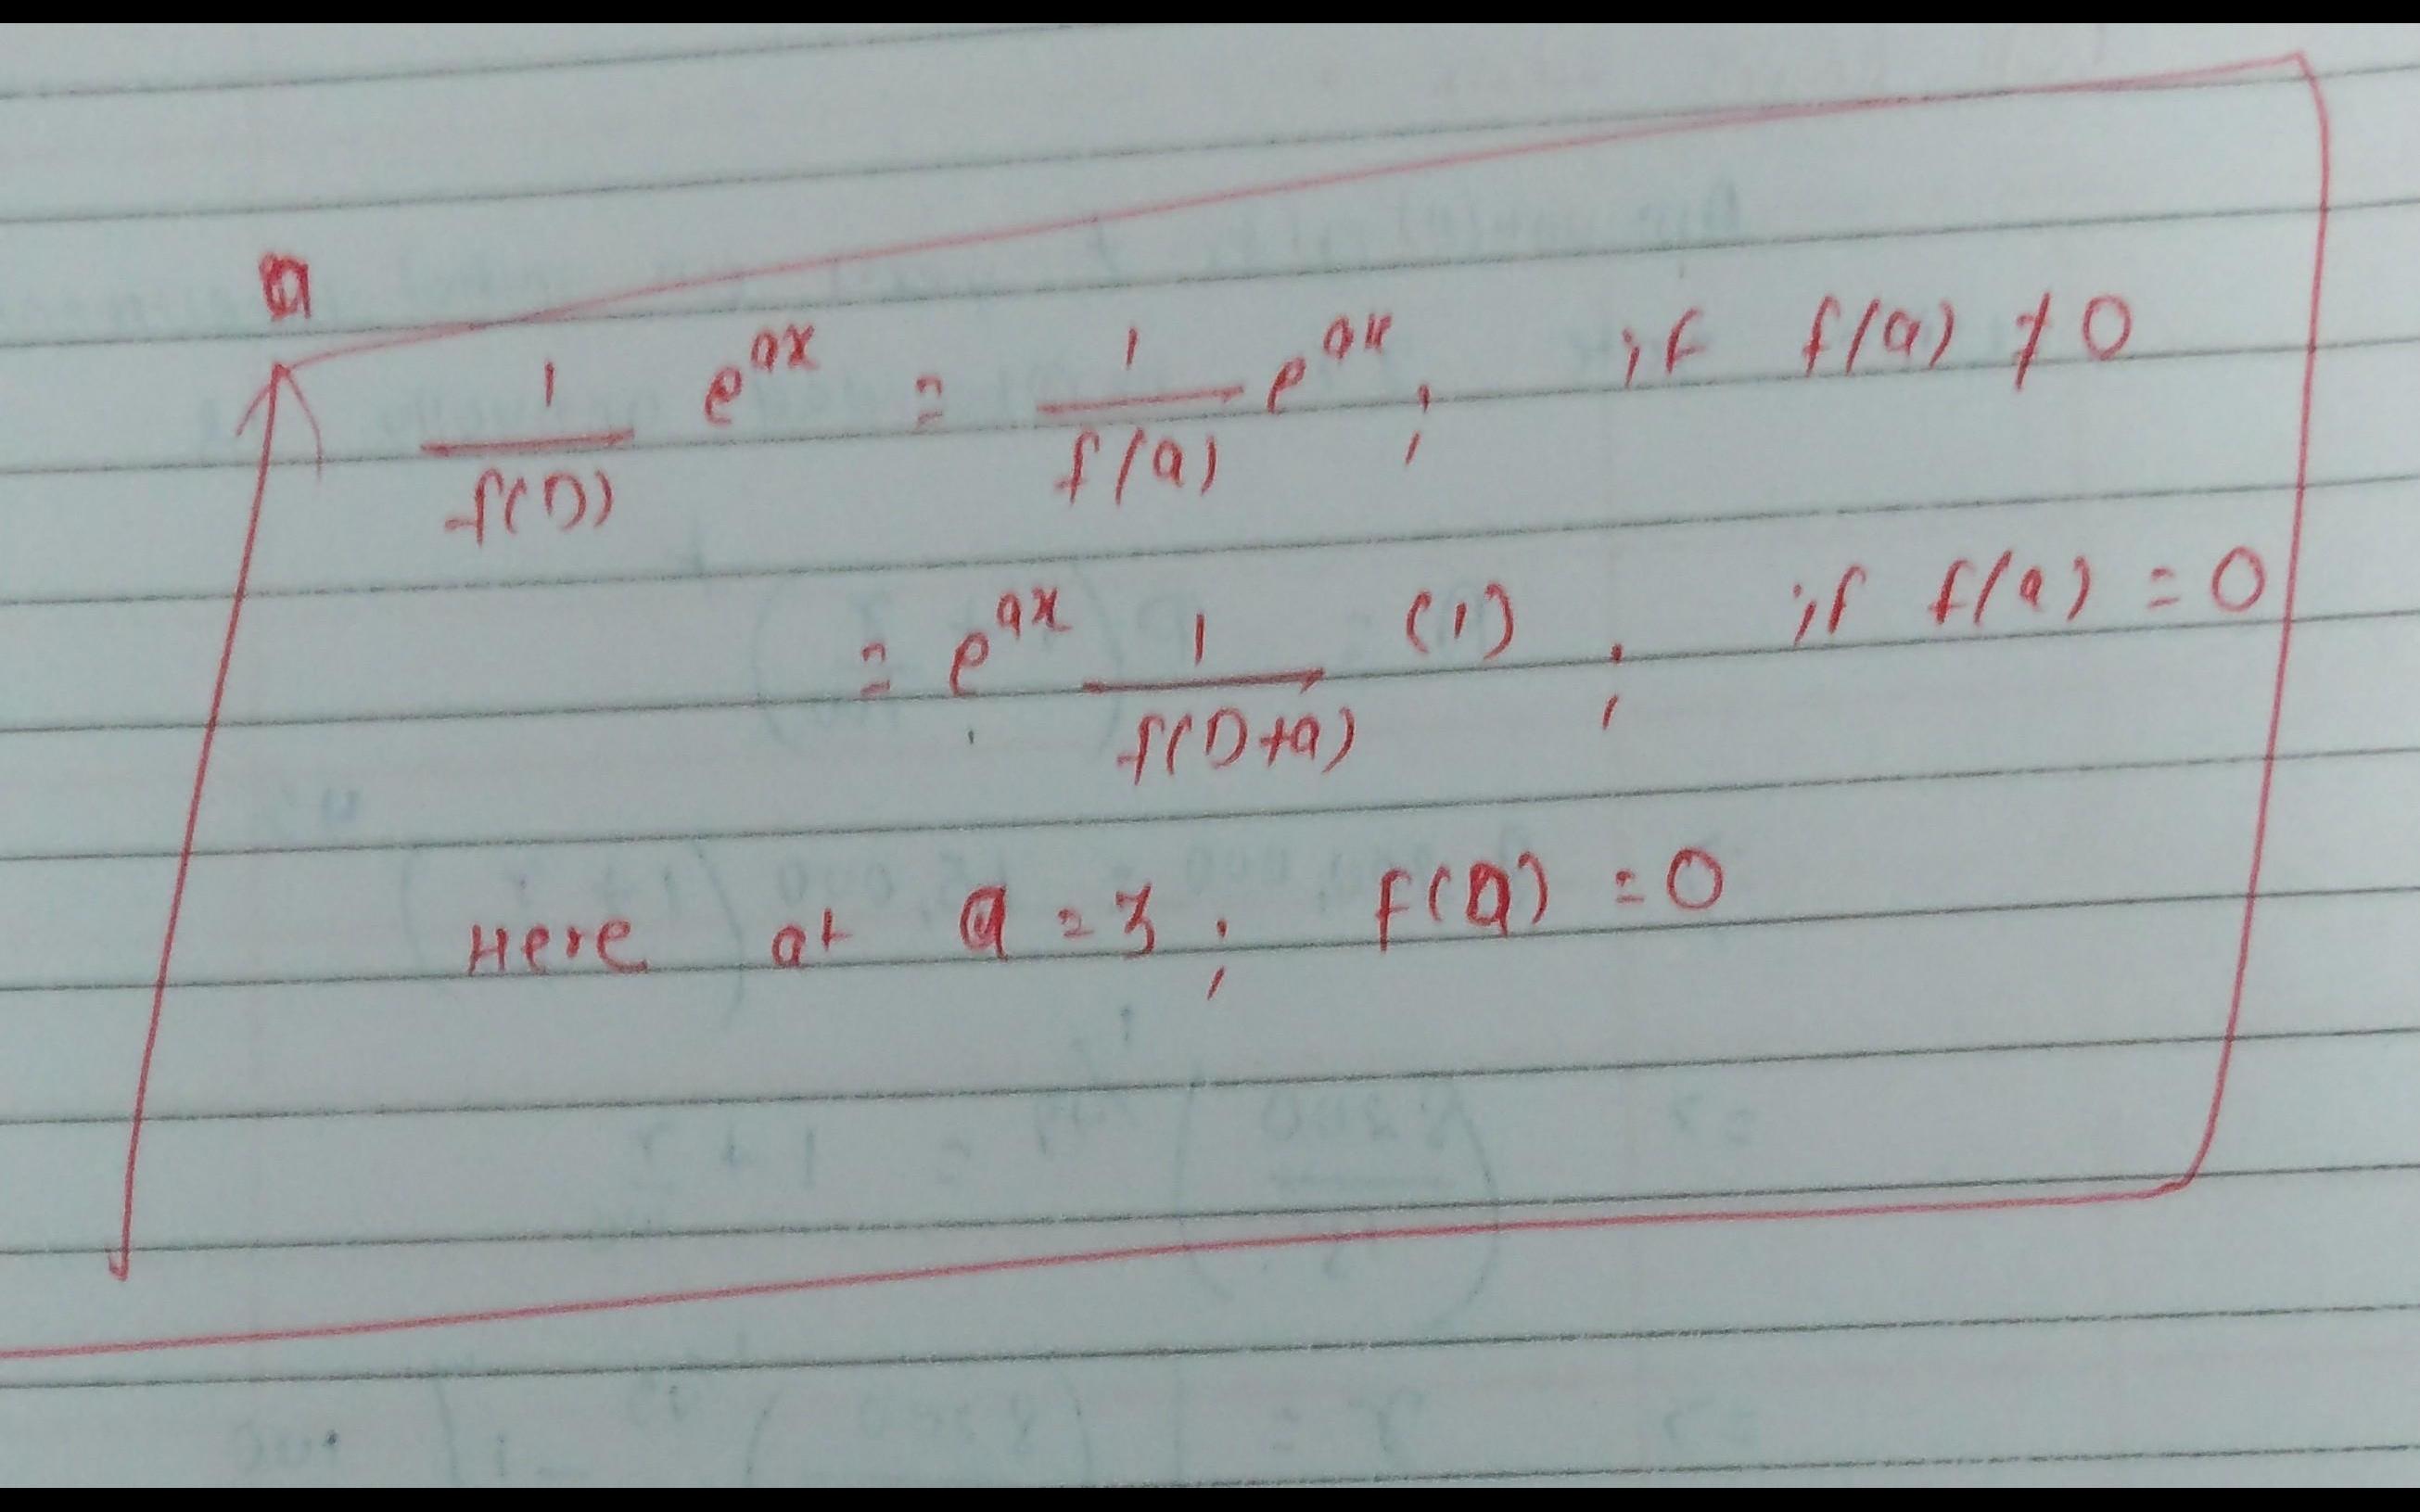 a
1/f(D) e^{ax} = 1/f(a) e^{ax} ; if f(a) ≠ 0
= e^{ax} 1/f(D+a) (1) ; if f(a) = 0
Here at a = 3 ; f(a) = 0